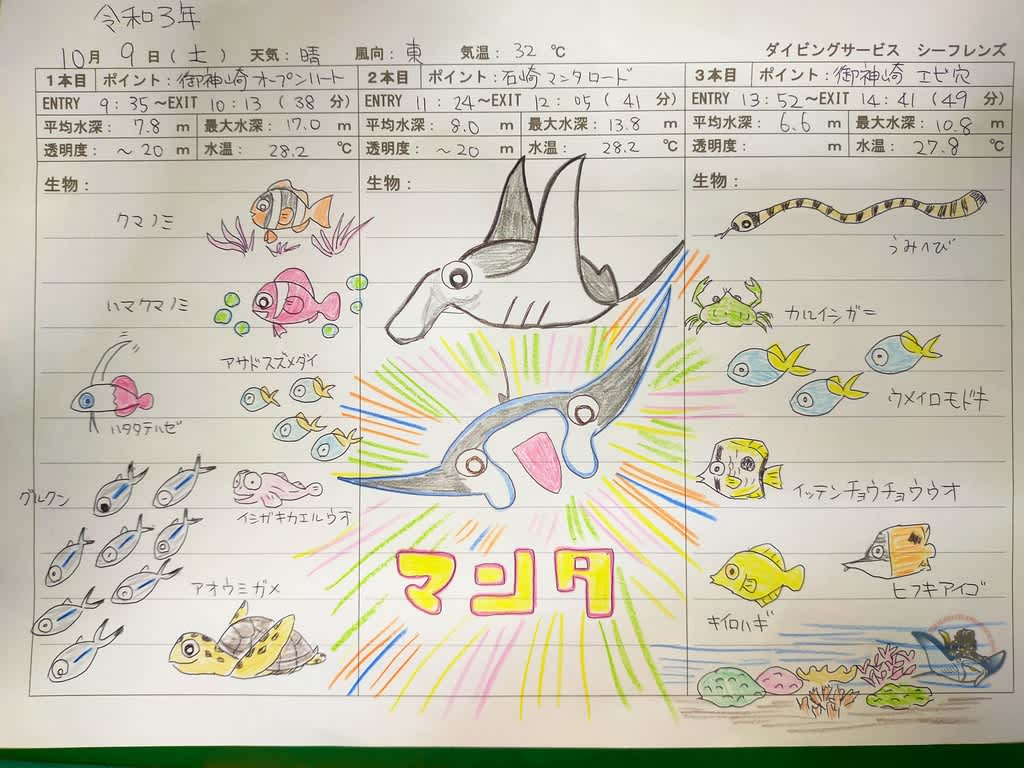 令和3年
10月 9日(土) 天気:晴 風向:東 気温:32℃ ダイビングサービス シーフレンズ
1本目 ポイント:御神崎オープンハート
ENTRY 9:35〜EXIT 10:13(38分)
平均水深:7.8m 最大水深:17.0m
透明度:〜20m 水温:28.2℃
生物:
クマノミ
ハマクマノミ
アサドスズメダイ
ハタタテハゼ
グルクン
イシガキカエルウオ
アオウミガメ
2本目 ポイント:石崎マンタロード
ENTRY 11:24〜EXIT 12:05(41分)
平均水深:8.0m 最大水深:13.8m
透明度:〜20m 水温:28.2℃
生物:
マンタ
3本目 ポイント:御神崎 エビ穴
ENTRY 13:52〜EXIT 14:41(49分)
平均水深:6.6m 最大水深:10.8m
透明度: m 水温:27.8℃
生物:
うみへび
カルイシガニ
ウメイロモドキ
イッテンチョウチョウウオ
ヒフキアイゴ
キイロハギ